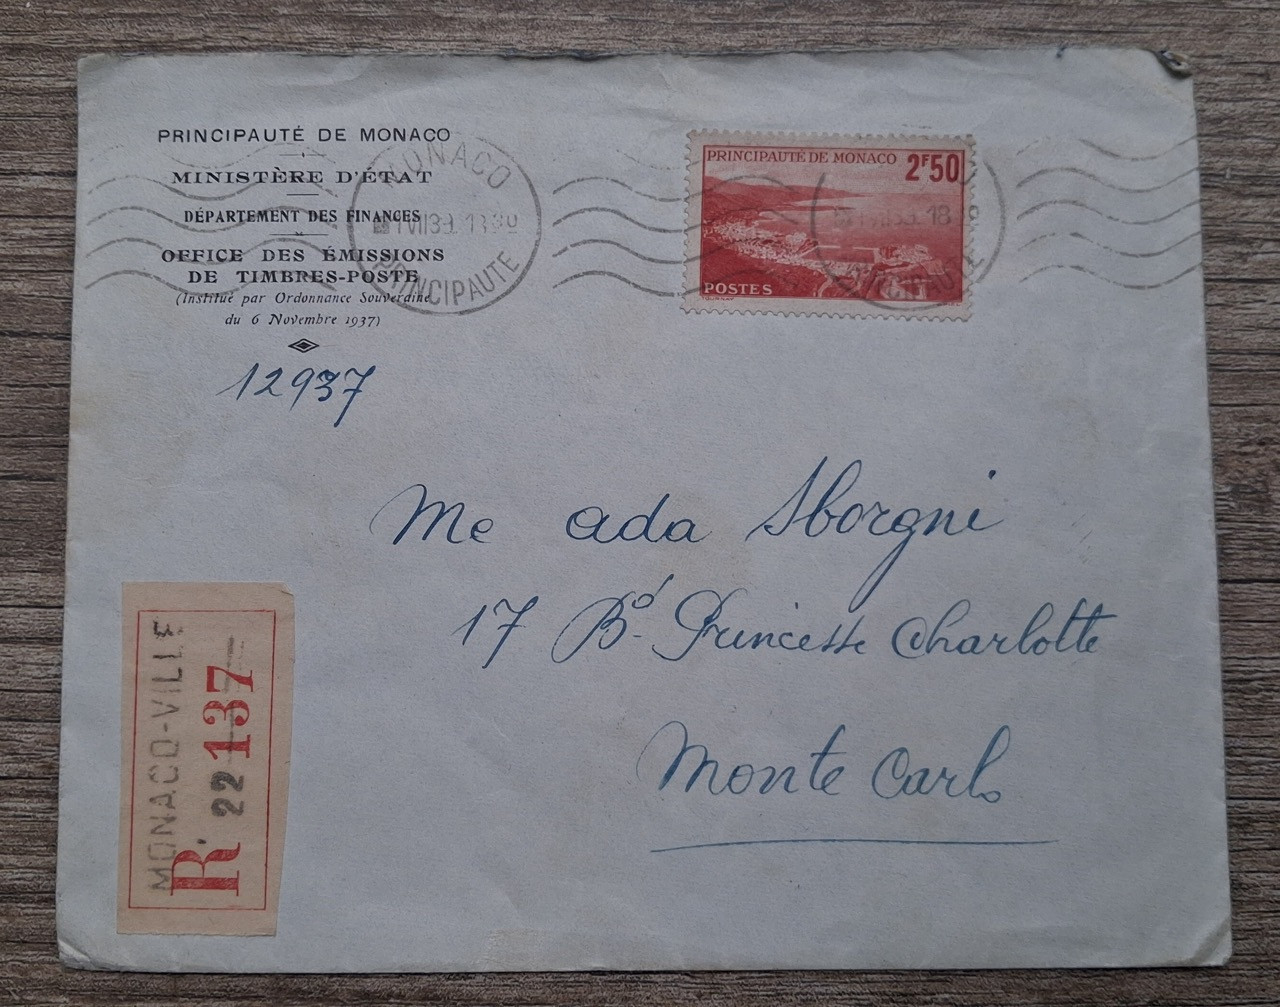 PRINCIPAUTÉ DE MONACO
MINISTÈRE D'ÉTAT
DÉPARTEMENT DES FINANCES
OFFICE DES ÉMISSIONS
DE TIMBRES-POSTE
(Institué par Ordonnance Souveraine
du 6 Novembre 1937)
12937
MONACO
PRINCIPAUTE
PRINCIPAUTÉ DE MONACO 2F50
POSTES
18
Me Ada Sborgni
17 Bd. Princesse Charlotte
Monte Carlo
MONACO-VILLE
R 22 137